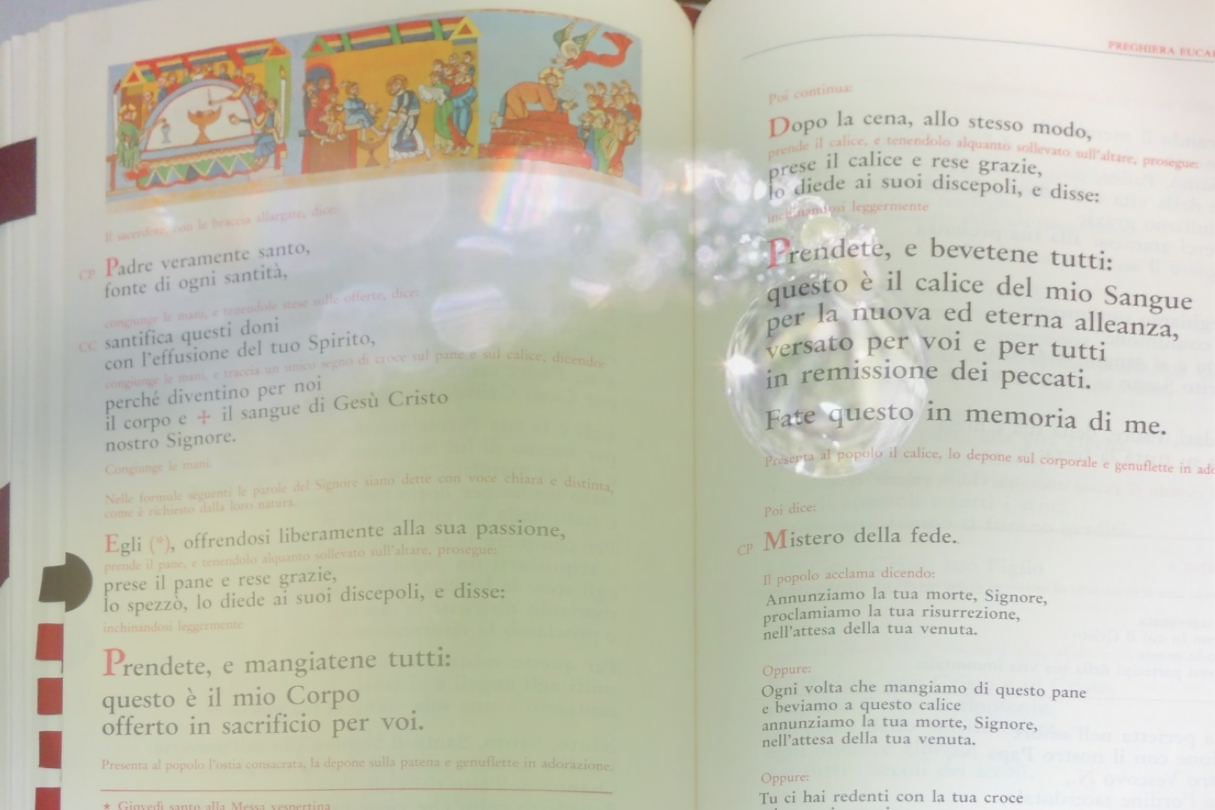 Il sacerdote, con le braccia allargate, dice:
CP Padre veramente santo,
fonte di ogni santità,
congiunge le mani, e tenendole stese sulle offerte, dice:
CC santifica questi doni
con l'effusione del tuo Spirito,
congiunge le mani, e traccia un unico segno di croce sul pane e sul calice, dicendo:
perché diventino per noi
il corpo e ✠ il sangue di Gesù Cristo
nostro Signore.
Congiunge le mani.
Nelle formule seguenti le parole del Signore siano dette con voce chiara e distinta,
come è richiesto dalla loro natura.
Egli (*), offrendosi liberamente alla sua passione,
prende il pane, e tenendolo alquanto sollevato sull'altare, prosegue:
prese il pane e rese grazie,
lo spezzò, lo diede ai suoi discepoli, e disse:
inchinandosi leggermente
Prendete, e mangiatene tutti:
questo è il mio Corpo
offerto in sacrificio per voi.
Presenta al popolo l'ostia consacrata, la depone sulla patena e genuflette in adorazione.
* Giovedì santo alla Messa vespertina
PREGHIERA EUCA
Poi continua:
Dopo la cena, allo stesso modo,
prende il calice, e tenendolo alquanto sollevato sull'altare, prosegue:
prese il calice e rese grazie,
lo diede ai suoi discepoli, e disse:
inchinandosi leggermente
Prendete, e bevetene tutti:
questo è il calice del mio Sangue
per la nuova ed eterna alleanza,
versato per voi e per tutti
in remissione dei peccati.
Fate questo in memoria di me.
Presenta al popolo il calice, lo depone sul corporale e genuflette in ado
Poi dice:
CP Mistero della fede.
Il popolo acclama dicendo:
Annunziamo la tua morte, Signore,
proclamiamo la tua risurrezione,
nell'attesa della tua venuta.
Oppure:
Ogni volta che mangiamo di questo pane
e beviamo a questo calice
annunziamo la tua morte, Signore,
nell'attesa della tua venuta.
Oppure:
Tu ci hai redenti con la tua croce